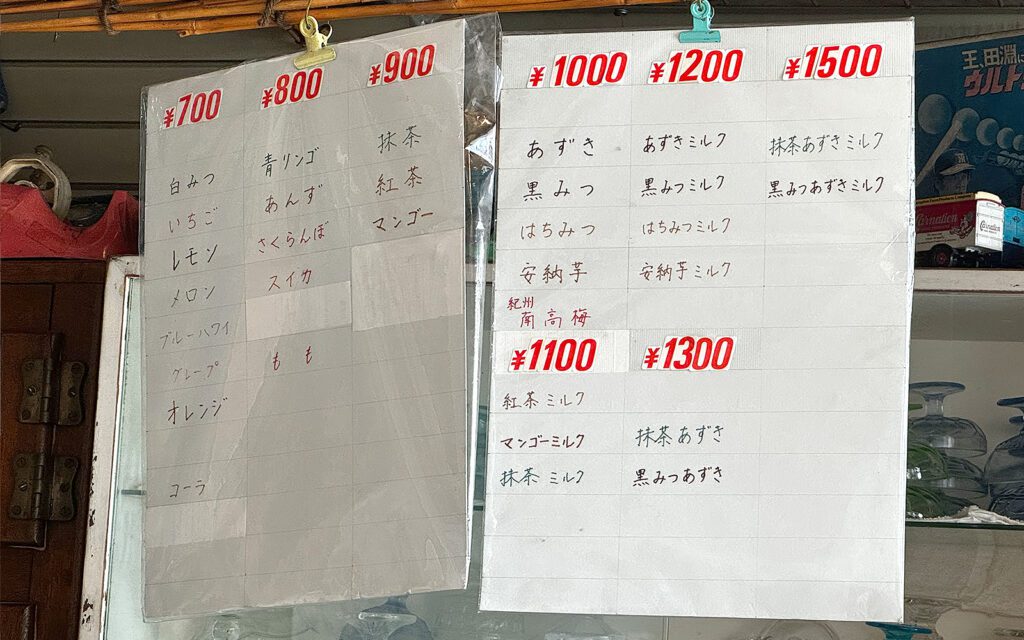 ¥700
白みつ
いちご
レモン
メロン
ブルーハワイ
グレープ
オレンジ
コーラ
¥800
青リンゴ
あんず
さくらんぼ
スイカ
もも
¥900
抹茶
紅茶
マンゴー
¥1000
あずき
黒みつ
はちみつ
安納芋
紀州
南高梅
¥1100
紅茶ミルク
マンゴーミルク
抹茶ミルク
¥1200
あずきミルク
黒みつミルク
はちみつミルク
安納芋ミルク
¥1300
抹茶あずき
黒みつあずき
¥1500
抹茶あずきミルク
黒みつあずきミルク
王、田淵に
ウルト
Carnation
Carnation